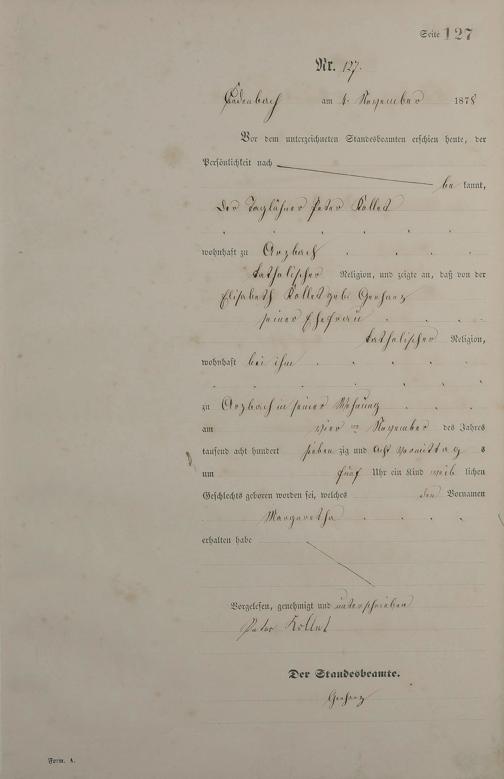 Seite 127
Nr. 127.
Cadenbach am 4. November 1878
Vor dem unterzeichneten Standesbeamten erschien heute, der
Persönlichkeit nach
be kannt,
der Taglöhner Peter Kollet
wohnhaft zu Arzbach
katholischer Religion, und zeigte an, daß von der
Elisabeth Kollet geb. Gerharz
seiner Ehefrau
katholischer Religion,
wohnhaft bei ihm
zu Arzbach in seiner Wohnung
am vier ten November des Jahres
tausend acht hundert sieben zig und acht Vormittag s
um fünf Uhr ein Kind weib lichen
Geschlechts geboren worden sei, welches den Vornamen
Margaretha
erhalten habe
Vorgelesen, genehmigt und unterschrieben
Peter Kollet
Der Standesbeamte.
Gerharz
Form. A.